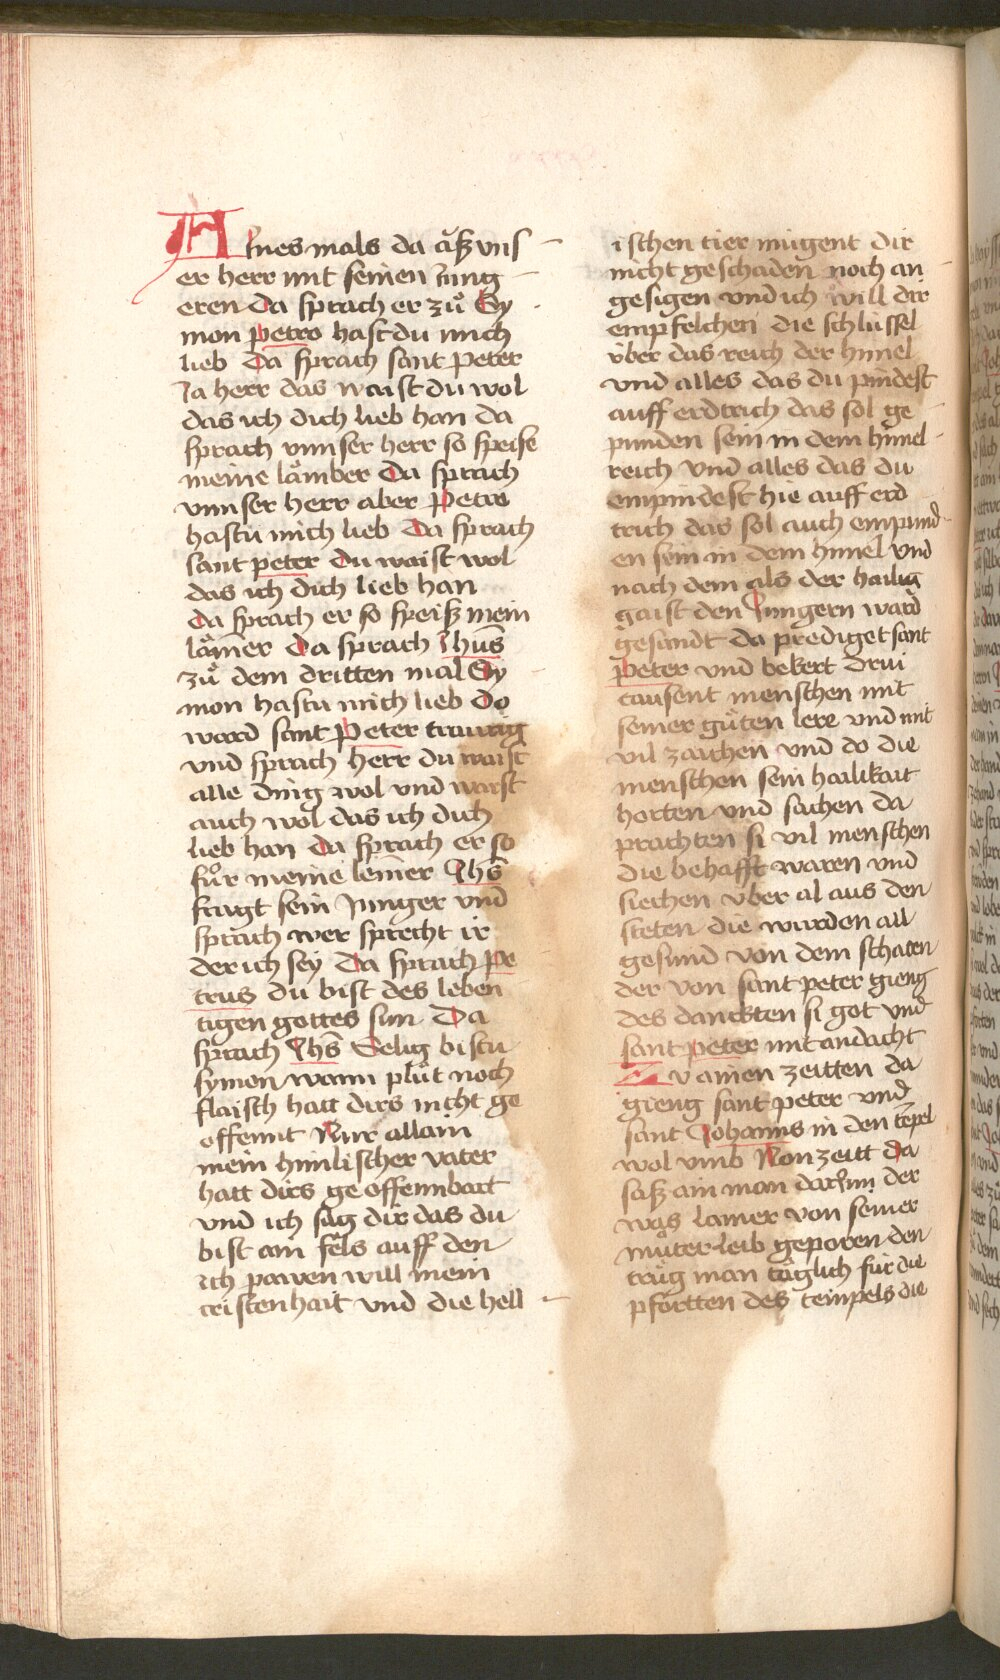 Aines mals da aͤß vns
er herr mit seinen iung
eren da sprach er zuͦ Sy
mon Petro hast du mich
lieb Da sprach sant Peter
Ja herr das waist du wol
das ich dich lieb han da
sprach vnnser herr so speise
meine laͤmber Da sprach
vnnser herr aber Petre
hastu mich lieb Da sprach
sant peter Du waist wol
das ich dich lieb han
da sprach er so speiß mein
laͤm̄er Da sprach Jhūs
zuͦ dem dritten mal Sy
mon hastu mich lieb Do
ward sant Peter traurig
vnd sprach herr du waist
alle ding wol vnd waist
auch wol das ich dich
lieb han Da sprach er so
fuͦr meine lemer Jhs̄
fragt sein Junger vnd
sprach wer sprecht ir
der ich sey Da sprach Pe
trus du bist des leben
tigen gottes sun Da
sprach Jhs̄ Selig bistu
symon wann pluͦt noch
flaisch hatt dirs nicht ge
offennt Nur allain
mein himlischer vater
hatt dirs geoffennbart
vnd ich sag dir das du
bist ain fels auff den
ich pawen will mein
cristenhait vnd die hell
ischen tier mugent dir
nicht geschaden noch an
gesigen vnd ich will dir
empfelchen die schlussel
vber das reich der himel
vnd alles das du pindest
auff erdtrich das sol ge
punden sein in dem himel
reich vnd alles das du
empindest hie auff erd
trich das sol auch empund
en sein in dem himel vnd
nach dem als der hailig
gaist den Jungern ward
gesandt da prediget sant
Peter vnd bekert drui
tausent menschen mit
seiner guͤten lere vnd mit
vil zaichen vnd do die
menschen sein hailikait
horten vnd sachen da
prachten si vil menschen
die behafft waren vnd
siechen vber al aus den
steten die wurden all
gesund von dem schaten
der von sant peter gieng
des danckten si got vnd
sant peter mit andacht
Zu ainen zeitten da
gieng sant peter vnd
sant Johanns in den tēpel
wol vmb Non zeitt Da
saß ain man darin̄ der
was lamer von seiner
muͤter leib geporen den
traͤg man taͤglich fur die
pfortten des tempels die